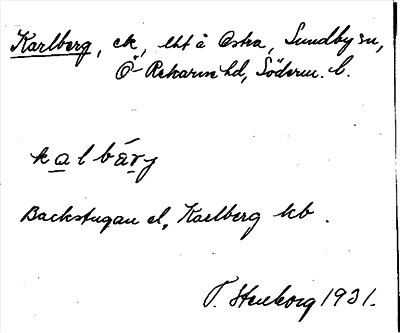 Karlberg, ck, lht å Östra, Lundby sn,
Ö-Rekarne hd, Söderm. l.
kalbárj
Backstugan el. Karlberg kb.
T. Stenborg 1931.